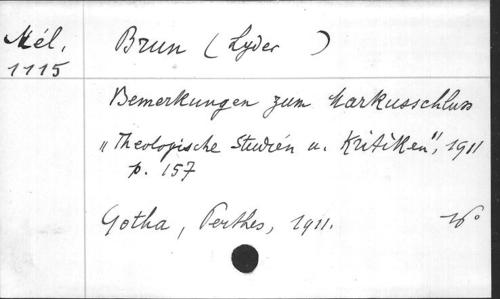 Mél. 1115
Brun (Lyder )
Bemerkungen zum Markusschluss
„Theologische Studien u. Kritiken", 1911
p. 157
Gotha, Perthes, 1911. 16°